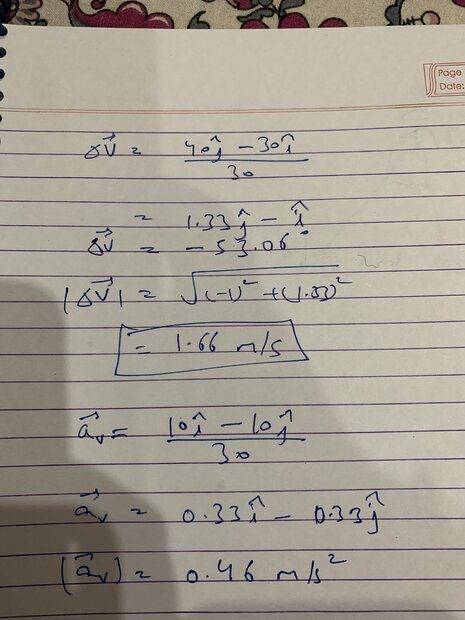 Page
Date:
ΔV⃗ = 40ĵ - 30î
30
= 1.33ĵ - î
ΔV⃗ = -53.06°
|ΔV⃗| = √(-1)² + (1.33)²
= 1.66 m/s
a⃗v = 10î - 10ĵ
30
a⃗v = 0.33î - 0.33ĵ
|a⃗v| = 0.46 m/s²